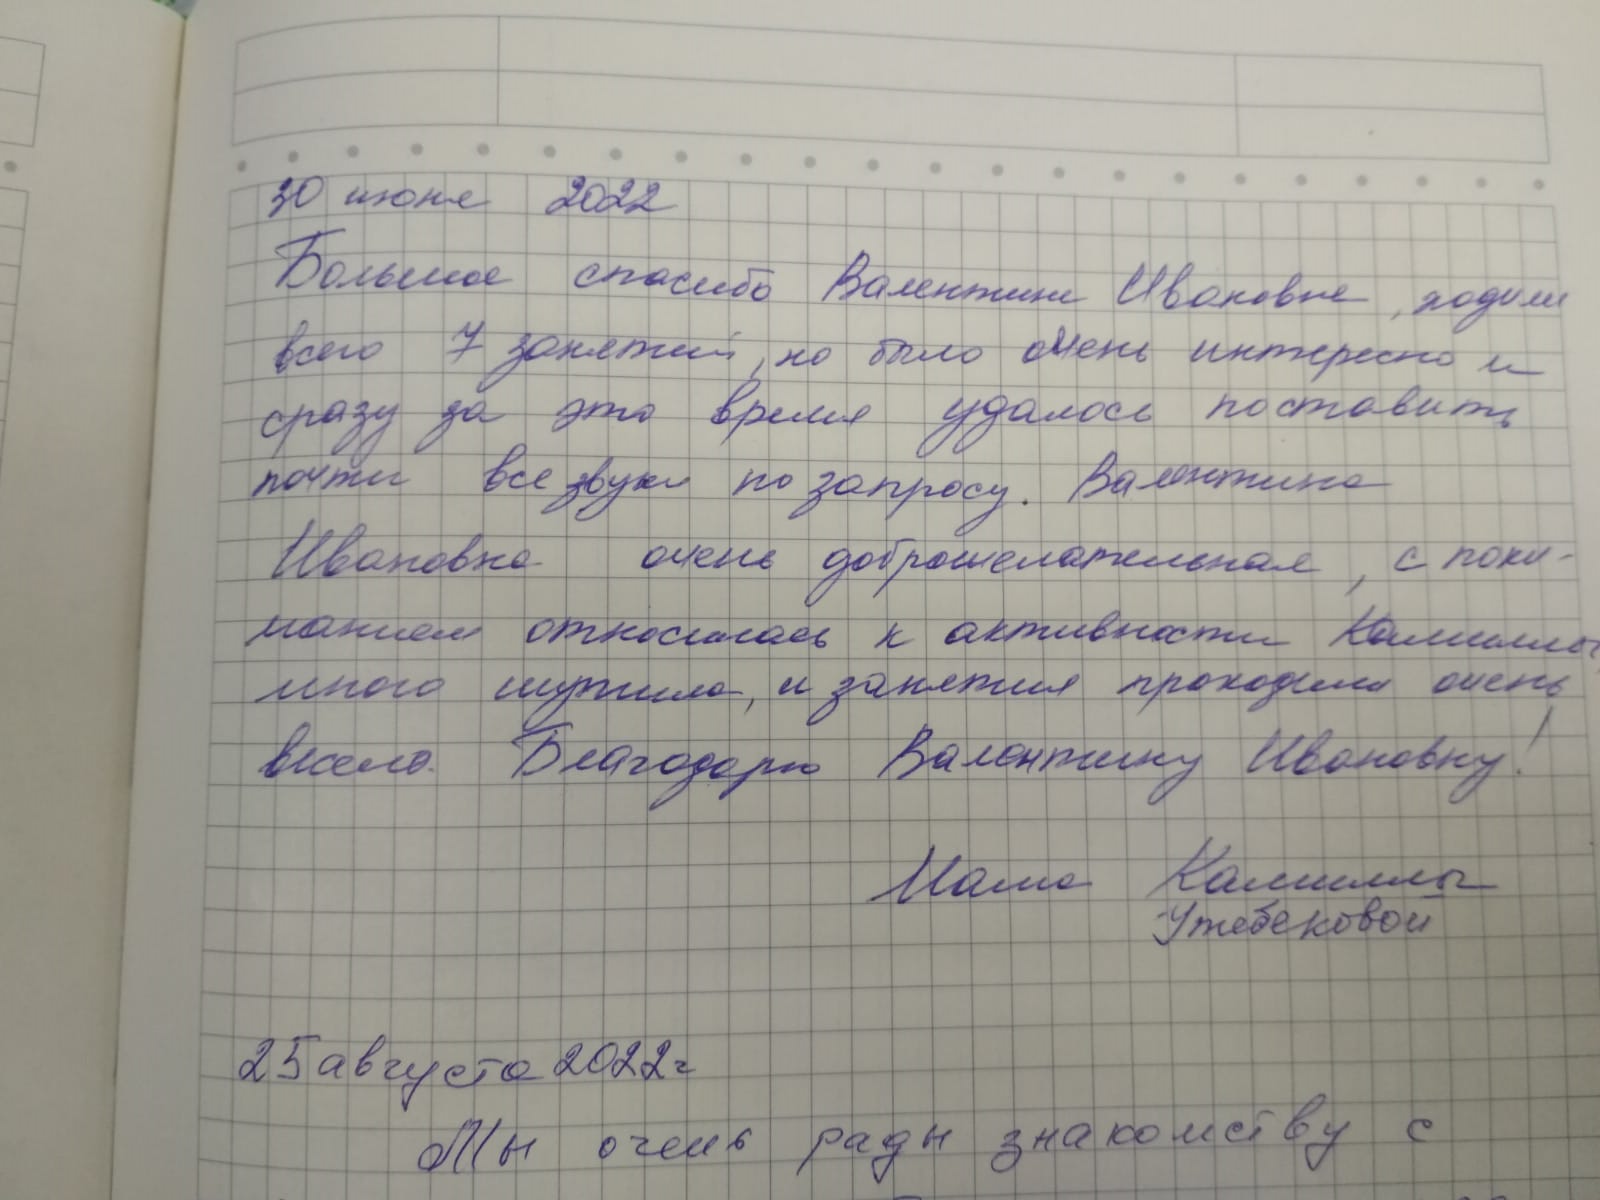 30 июня 2022
Большое спасибо Валентине Ивановне, ходили
всего 7 занятий, но было очень интересно и
сразу за это время удалось поставить
почти все звуки по запросу. Валентина
Ивановна очень доброжелательная, с пони-
манием относилась к активности Камиллы,
много шутила, и занятия проходили очень
весело. Благодарю Валентину Ивановну!
Мама Камиллы
Утебековой
25 августа 2022г
Мы очень рады знакомству с